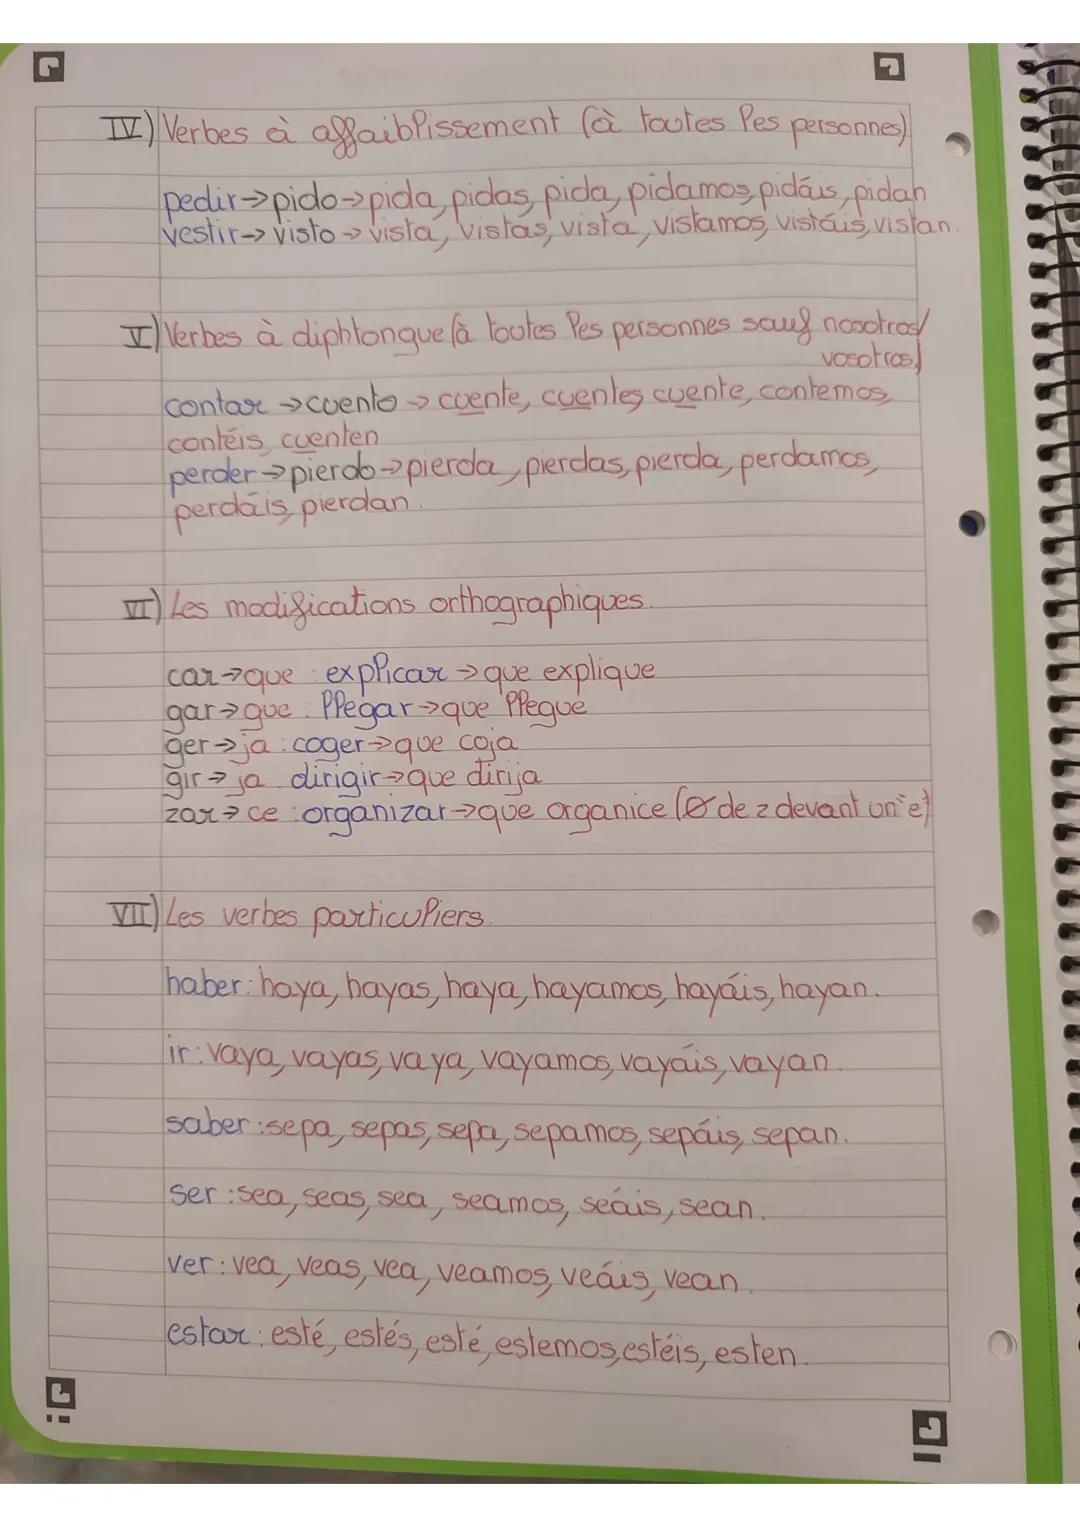 IV) Verbes à affaiblissement (à toutes les personnes)
pedir→pido→pida, pidas, pida, pidamos, pidáis, pidan
vestir→ visto → vista, vistas, vista, vistamos, vistáis, vistan.
V) Verbes à diphtongue (à toutes les personnes sauf nosotros/
vosotros)
contar →cuento → cuente, cuentes, cuente, contemos,
contéis, cuenten
perder→pierdo→pierda, pierdas, pierda, perdamos,
perdáis, pierdan.
VI) Les modifications orthographiques.
car→que : explicar → que explique
gar→gue : llegar→que llegue
ger→ja : coger→que coja
gir→ ja : dirigir→que dirija
zar→ ce : organizar→que organice (Ø de z devant un "e")
VII) Les verbes particuliers.
haber : haya, hayas, haya, hayamos, hayáis, hayan.
ir : vaya, vayas, vaya, vayamos, vayáis, vayan.
saber : sepa, sepas, sepa, sepamos, sepáis, sepan.
ser : sea, seas, sea, seamos, seáis, sean.
ver : vea, veas, vea, veamos, veáis, vean.
estar : esté, estés, esté, estemos, estéis, esten.